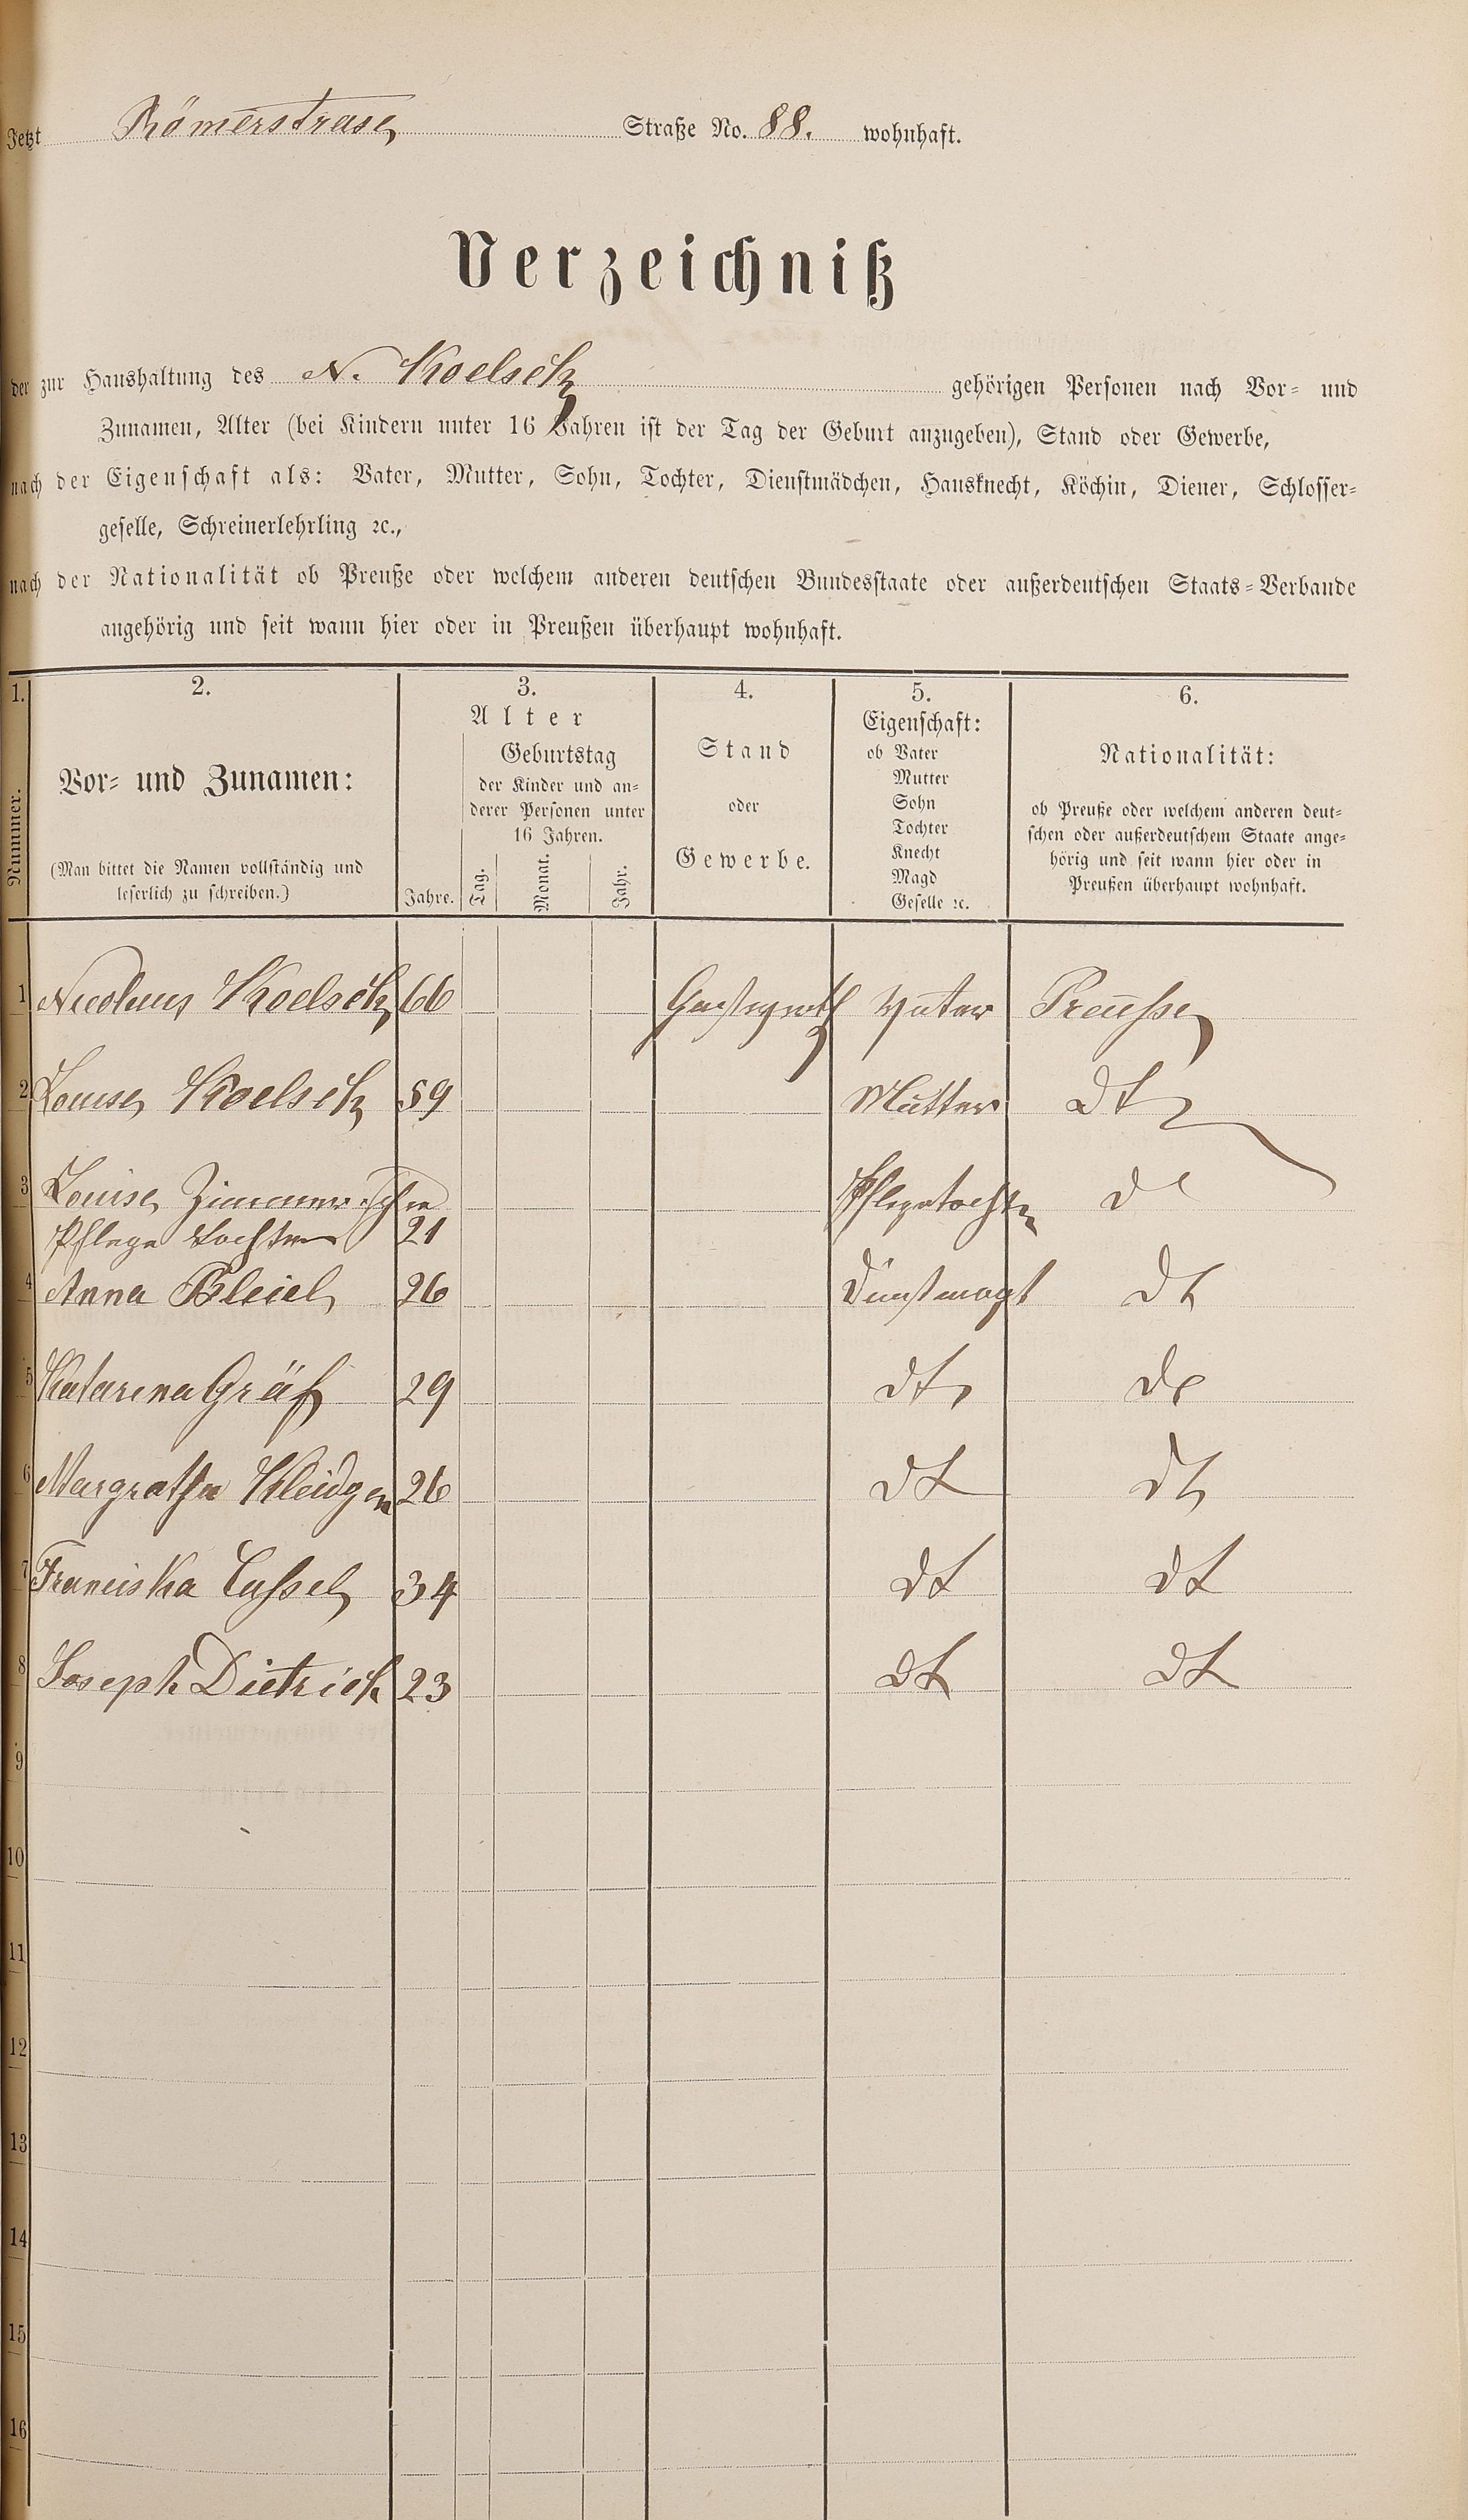 Jetzt Römerstrase Straße No. 88. wohnhaft.
Verzeichniß
der zur Haushaltung des N. Koelsch gehörigen Personen nach Vor- und
Zunamen, Alter (bei Kindern unter 16 Jahren ist der Tag der Geburt anzugeben), Stand oder Gewerbe,
nach der Eigenschaft als: Vater, Mutter, Sohn, Tochter, Dienstmädchen, Hausknecht, Köchin, Diener, Schlosser-
geselle, Schreinerlehrling ꝛc.,
nach der Nationalität ob Preuße oder welchem anderen deutschen Bundesstaate oder außerdeutschen Staats-Verbande
angehörig und seit wann hier oder in Preußen überhaupt wohnhaft.
1. 2. 3. 4. 5. 6.
Nummer.
Vor- und Zunamen:
(Man bittet die Namen vollständig und
leserlich zu schreiben.)
Alter
Jahre.
Geburtstag
der Kinder und an-
derer Personen unter
16 Jahren.
Tag. Monat. Jahr.
Stand
oder
Gewerbe.
Eigenschaft:
ob Vater
Mutter
Sohn
Tochter
Knecht
Magd
Geselle ꝛc.
Nationalität:
ob Preuße oder welchem anderen deut-
schen oder außerdeutschem Staate ange-
hörig und seit wann hier oder in
Preußen überhaupt wohnhaft.
1 Nicolaus Koelsch 66 Gastwirth Vater Preusse
2 Louise Koelsch 59 Mutter dt
3 Louise Pflegetochter dt
Pflege Tochter 21
4 Anna Bleiel 26 Dienstmagt dt
5 Katarina Gräf 29 dt dt
6 Margretha Kleidgen 26 dt dt
7 Franciska Cassel 34 dt dt
8 Joseph Dietrich 23 dt dt
9
10
11
12
13
14
15
16